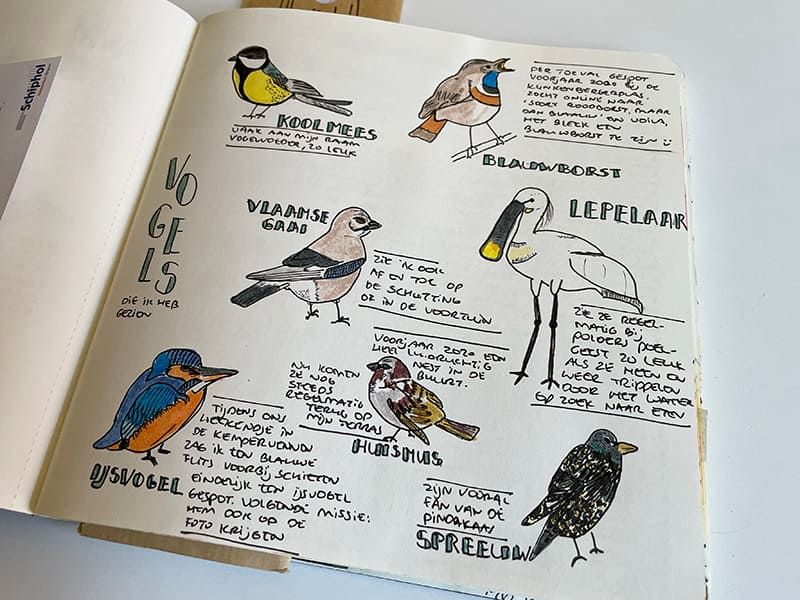 Schiphol
VOGELS
DIE IK HEB
GEZIEN
KOOLMEES
VAAK AAN MIJN RAAM
VOGELVOEDER, ZO LEUK
PER TOEVAL GESPOT
VOORJAAR 2020 BIJ DE
ZOCHT ONLINE NAAR
'SOORT ROODBORST, MAAR
DAN BLAUW' EN VOILA,
HET BLEEK EEN
BLAUWBORST TE ZIJN
BLAUWBORST
VLAAMSE
GAAI
ZIE IK OOK
AF EN TOE OP
DE SCHUTTING
OF IN DE VOORTUIN
LEPELAAR
ZIE ZE REGEL-
MATIG BIJ
POLDERS POEL-
GEEST ZO LEUK
ALS ZE HEEN EN
WEER TRIPPELEN
DOOR HET WATER
OP ZOEK NAAR ETEN
IJSVOGEL
TIJDENS ONS
WEEKENDJE IN
DE KEMPERVENNEN
ZAG IK EEN BLAUWE
FLITS VOORBIJ SCHIETEN
EINDELIJK EEN IJSVOGEL
GESPOT. VOLGENDE MISSIE:
HEM OOK OP DE
FOTO KRIJGEN
VOORJAAR 2020 EEN
HEEL LUIDRUCHTIG
NEST IN DE
BUURT.
NU KOMEN
ZE NOG
STEEDS
REGELMATIG
TERUG OP
MIJN TERRAS
HUISMUS
ZIJN VOORAL
FAN VAN DE
PINDAKAAS
SPREEUW